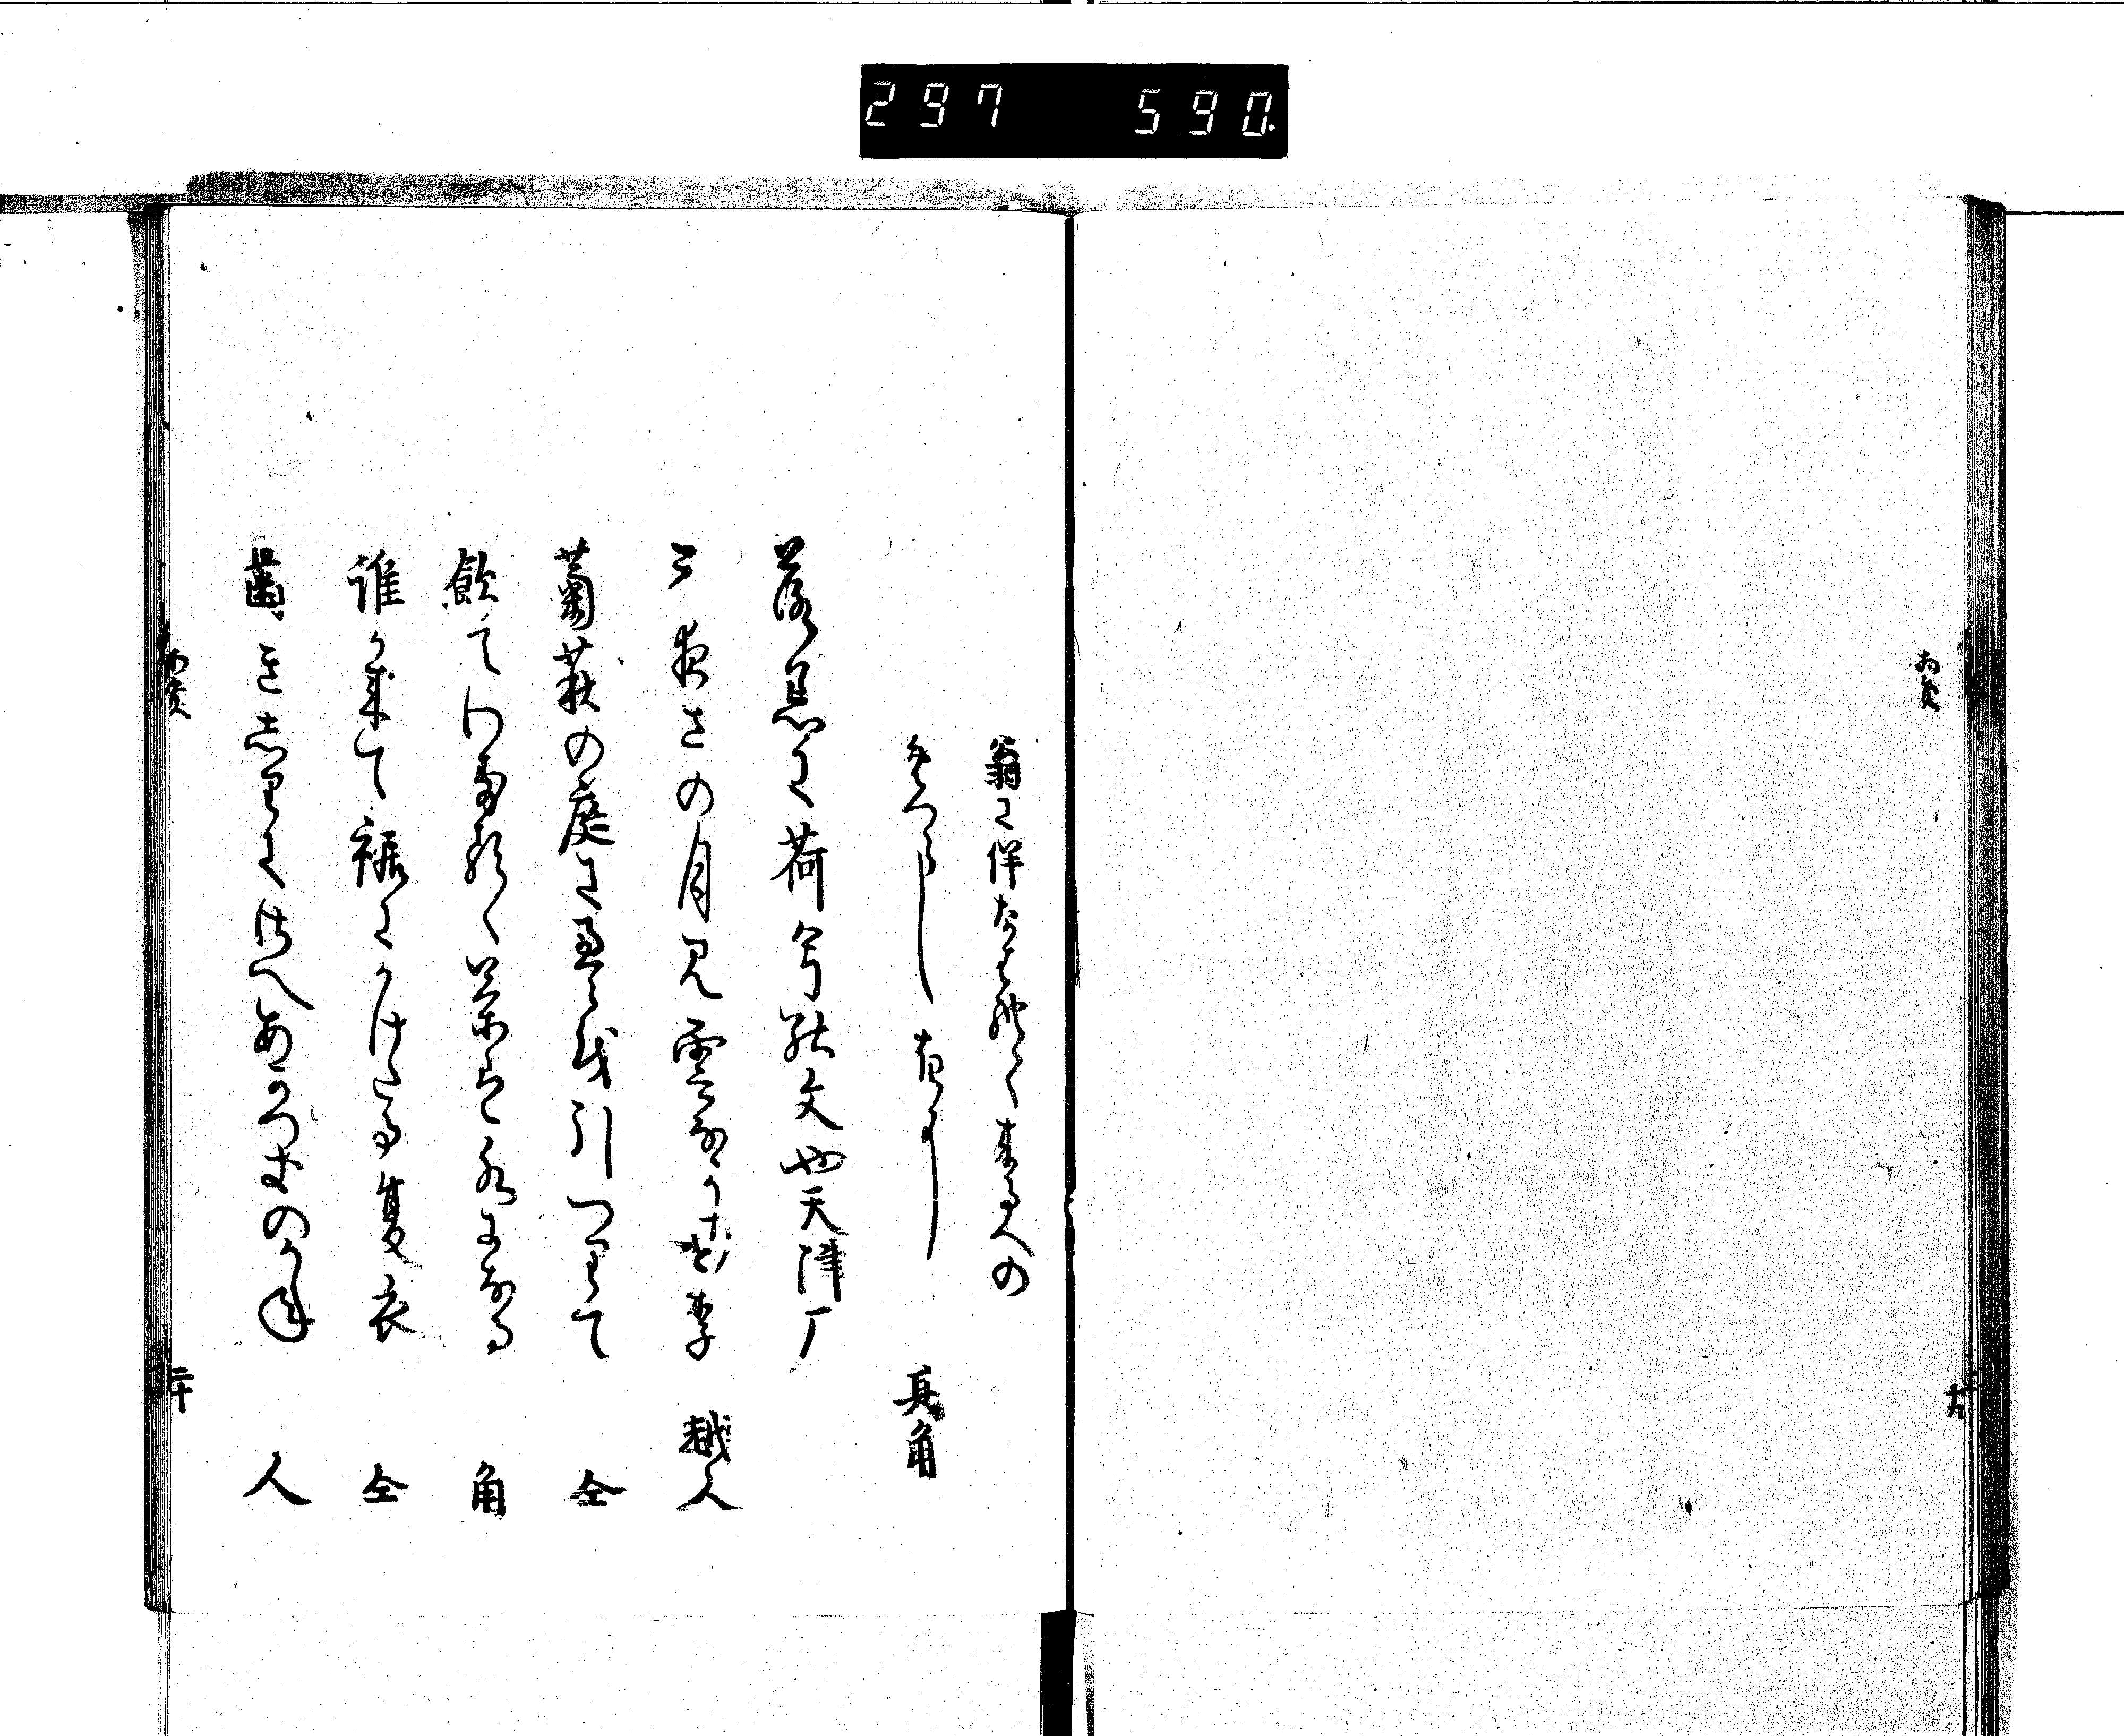 297 590
十九
翁に伴なはれて来る人の
めつらしきに 其角
落着に荷兮の文や天津厂
三夜さの月見雲なかりけり 越人
菊萩の庭に畳を引つりて 仝
飲てわするゝ茶は水になる 角
誰か来て裾にかけたる夏衣 仝
歯きしりにさへあかつきのかね 人
二十